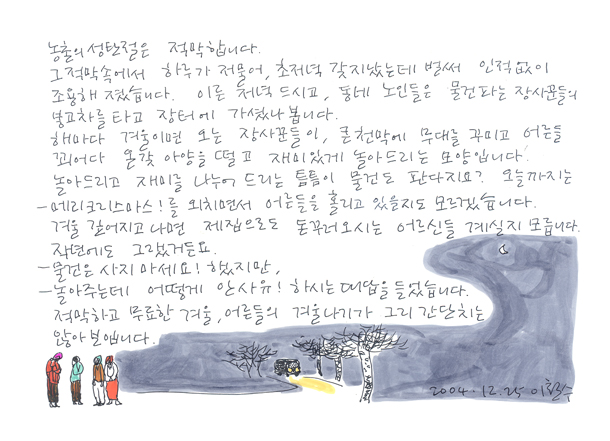 농촌의 성탄절은 적막합니다.
그 적막속에서 하루가 저물어, 초저녁 갓지났는데 벌써 인적없이
조용해 졌습니다. 이른 저녁 드시고, 동네 노인들은 물건파는 장사꾼들의
봉고차를 타고 장터에 가셨나 봅니다.
해마다 겨울이면 오는 장사꾼들이, 큰천막에 무대를 꾸미고 어른들
꾀어다 온갖 아양을 떨고 재미있게 놀아드리는 모양입니다.
놀아드리고 재미를 나누어 드리는 틈틈이 물건도 판다지요? 오늘까지는
- 메리크리스마스! 를 외치면서 어른들을 홀리고 있을지도 모르겠습니다.
겨울 깊어지고나면 제집으로도 돈꾸러오시는 어르신들 계실지 모릅니다.
작년에도 그랬거든요.
- 물건은 사지 마세요! 했지만,
- 놀아주는데 어떻게 안사유! 하시는 대답을 들었습니다.
적막하고 무료한 겨울, 어른들의 겨울나기가 그리 간단치는
않아 보입니다.
2004.12.25 이철수